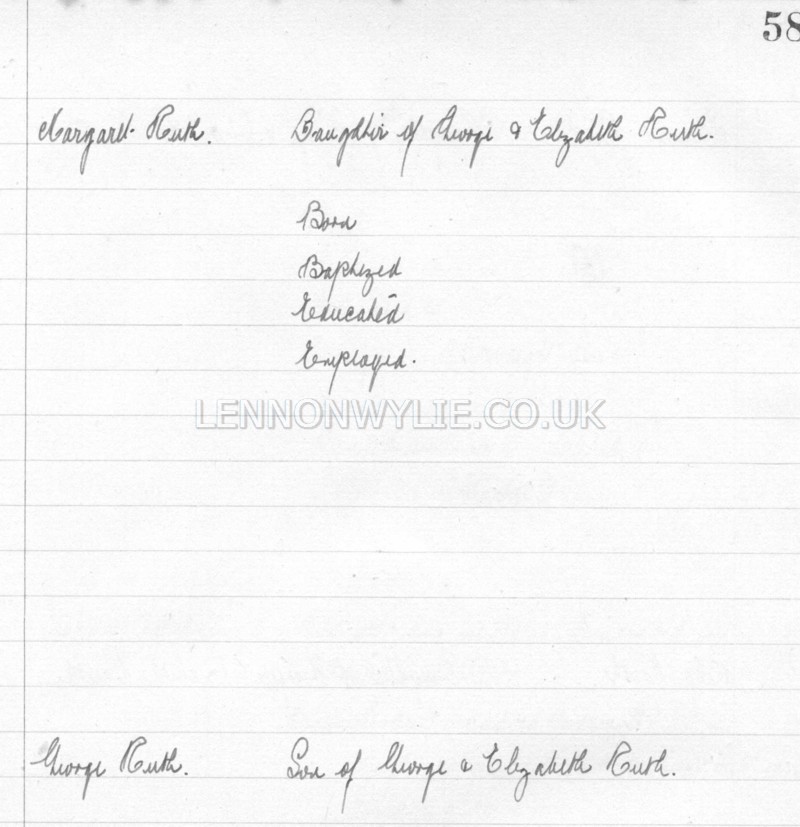 58
Margaret Ruth. Daughter of George & Elizabeth Ruth.
Born
Baptized
Educated
Employed.
LENNONWYLIE.CO.UK
George Ruth. Son of George & Elizabeth Ruth.